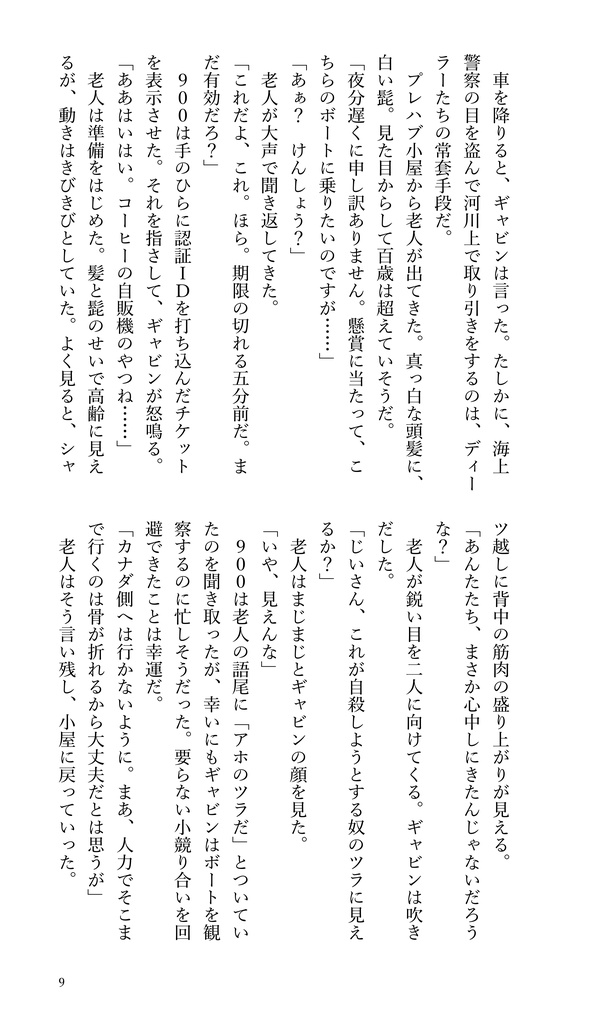 車を降りると、ギャビンは言った。たしかに、海上
警察の目を盗んで河川上で取り引きをするのは、ディー
ラーたちの常套手段だ。
　プレハブ小屋から老人が出てきた。真っ白な頭髪に、
白い髭。見た目からして百歳は超えていそうだ。
「夜分遅くに申し訳ありません。懸賞に当たって、こ
ちらのボートに乗りたいのですが……」
「あぁ？　けんしょう？」
　老人が大声で聞き返してきた。
「これだよ、これ。ほら。期限の切れる五分前だ。ま
だ有効だろ？」
　９００は手のひらに認証ＩＤを打ち込んだチケット
を表示させた。それを指さして、ギャビンが怒鳴る。
「ああはいはい。コーヒーの自販機のやつね……」
　老人は準備をはじめた。髪と髭のせいで高齢に見え
るが、動きはきびきびとしていた。よく見ると、シャ
ツ越しに背中の筋肉の盛り上がりが見える。
「あんたたち、まさか心中しにきたんじゃないだろう
な？」
　老人が鋭い目を二人に向けてくる。ギャビンは吹き
だした。
「じいさん、これが自殺しようとする奴のツラに見え
るか？」
　老人はまじまじとギャビンの顔を見た。
「いや、見えんな」
　９００は老人の語尾に「アホのツラだ」とついてい
たのを聞き取ったが、幸いにもギャビンはボートを観
察するのに忙しそうだった。要らない小競り合いを回
避できたことは幸運だ。
「カナダ側へは行かないように。まあ、人力でそこま
で行くのは骨が折れるから大丈夫だとは思うが」
　老人はそう言い残し、小屋に戻っていった。
9